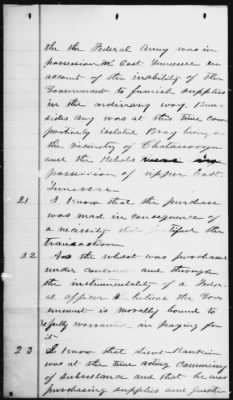 the the Federal Army was in
possession of East Tennessee on
account of the inability of the
Government to furnish supplies
in the ordinary way, Burn-
sides Army was at this time com-
paritively isolated Bragg being in
the vicinity of Chatanooga
and the Rebels
possession of upper East
Tennessee
21 I know that the purchase
was mad in consequence of
a necessity that justified the
transaction
22 As the wheat was purchased
under contract and through
the instrumentality of a Fede-
ral officer I believe the Gov-
ernment is morally bound to
warranted in paying for
it
23 I know that Lieut Rankin
was at the time acting Commissary
of Subsistance and that he was
purchasing supplies and